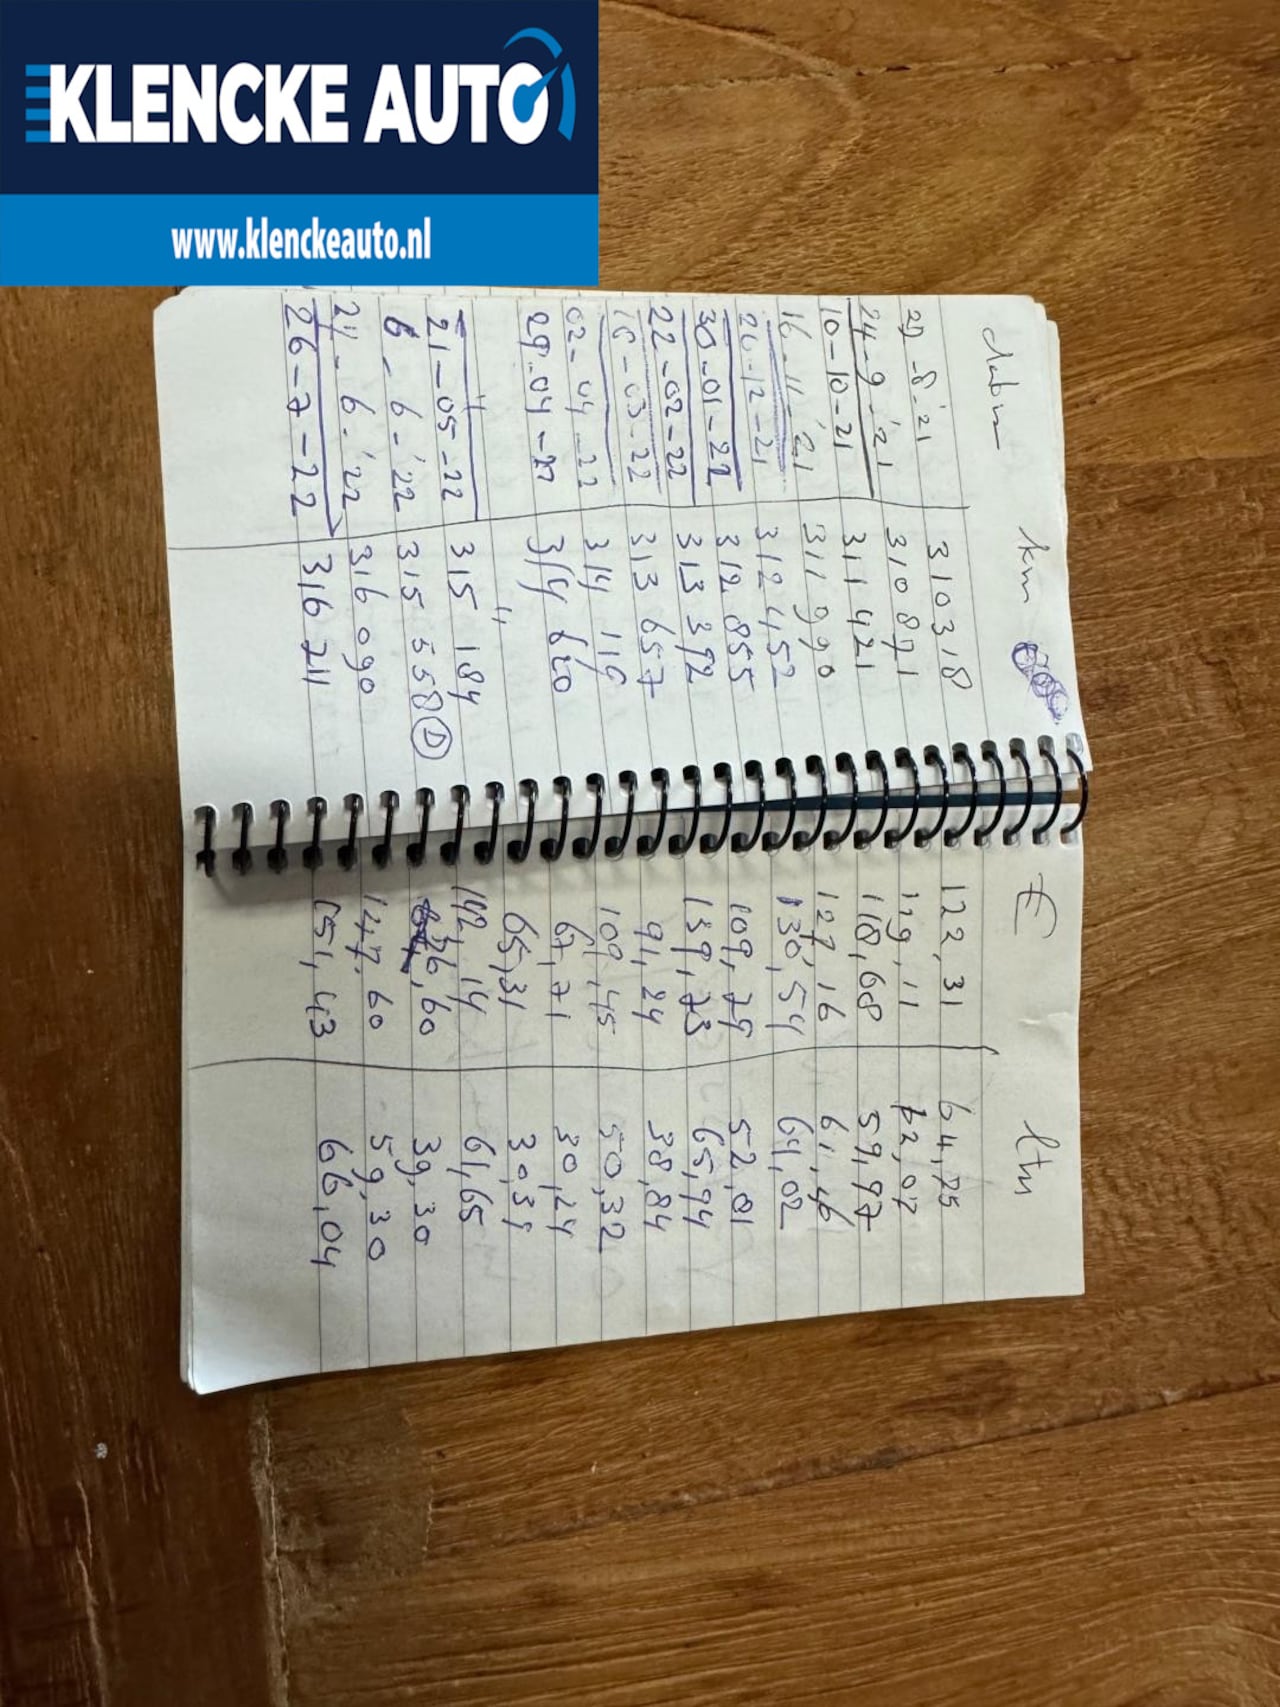 KLENCKE AUTO
www.klenckeauto.nl
datum km € ltn
29-8-'21 310318 122,31 64,75
24-9-'21 310871 129,11 62,07
10-10-21 311421 118,68 59,97
16-11-'21 311990 127,16 61,46
20-12-21 312452 130,54 64,02
30-01-22 312855 109,79 52,01
22-02-22 313392 139,73 65,94
18-03-22 313657 91,24 38,84
02-04-22 314 116 109,45 50,32
29-04-22 314 620 67,71 30,24
" " 65,31 30,39
21-05-22 315 184 142,14 61,65
6-6-'22 315 558 D 36,60 39,30
24-6-'22 316 090 147,60 59,30
26-7-22 316 711 151,43 66,04